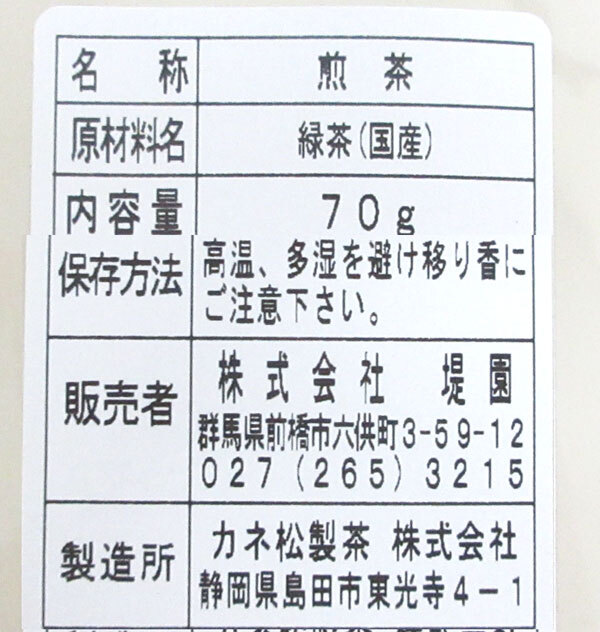 名 称 煎 茶
原材料名 緑茶(国産)
内容量 70g
保存方法 高温、多湿を避け移り香に
ご注意下さい。
販売者 株式会社 堤園
群馬県前橋市六供町3-59-12
027(265)3215
製造所 カネ松製茶 株式会社
静岡県島田市東光寺4-1